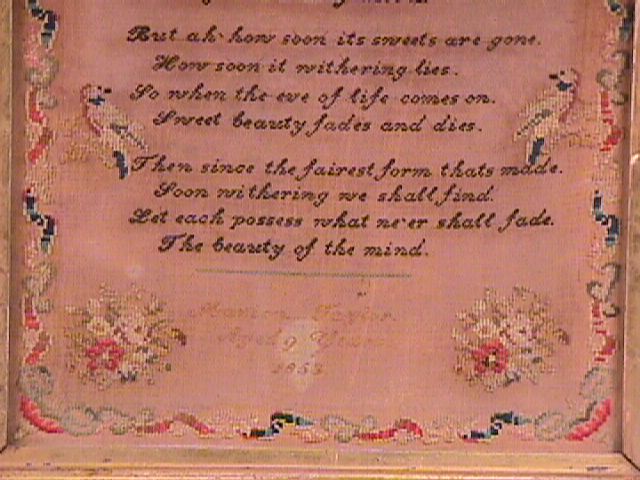 But ah how soon its sweets are gone.
How soon it withering lies.
So when the eve of life comes on.
Sweet beauty fades and dies.
Then since the fairest form thats made.
Soon withering we shall find.
Let each possess what ne'er shall fade.
The beauty of the mind.
Taylor
Aged 9 Years